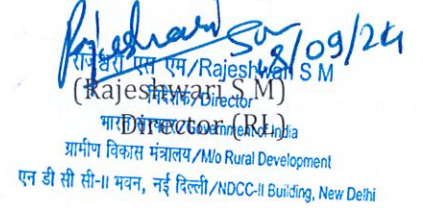 Rajeshwari S M
18/09/24
राजेश्वरी एस एम/Rajeshwari S M
(Rajeshwari S M)
निदेशक/Director
Director (RL)
भारत सरकार/Government of India
ग्रामीण विकास मंत्रालय/M/o Rural Development
एन डी सी सी-II भवन, नई दिल्ली/NDCC-II Building, New Delhi